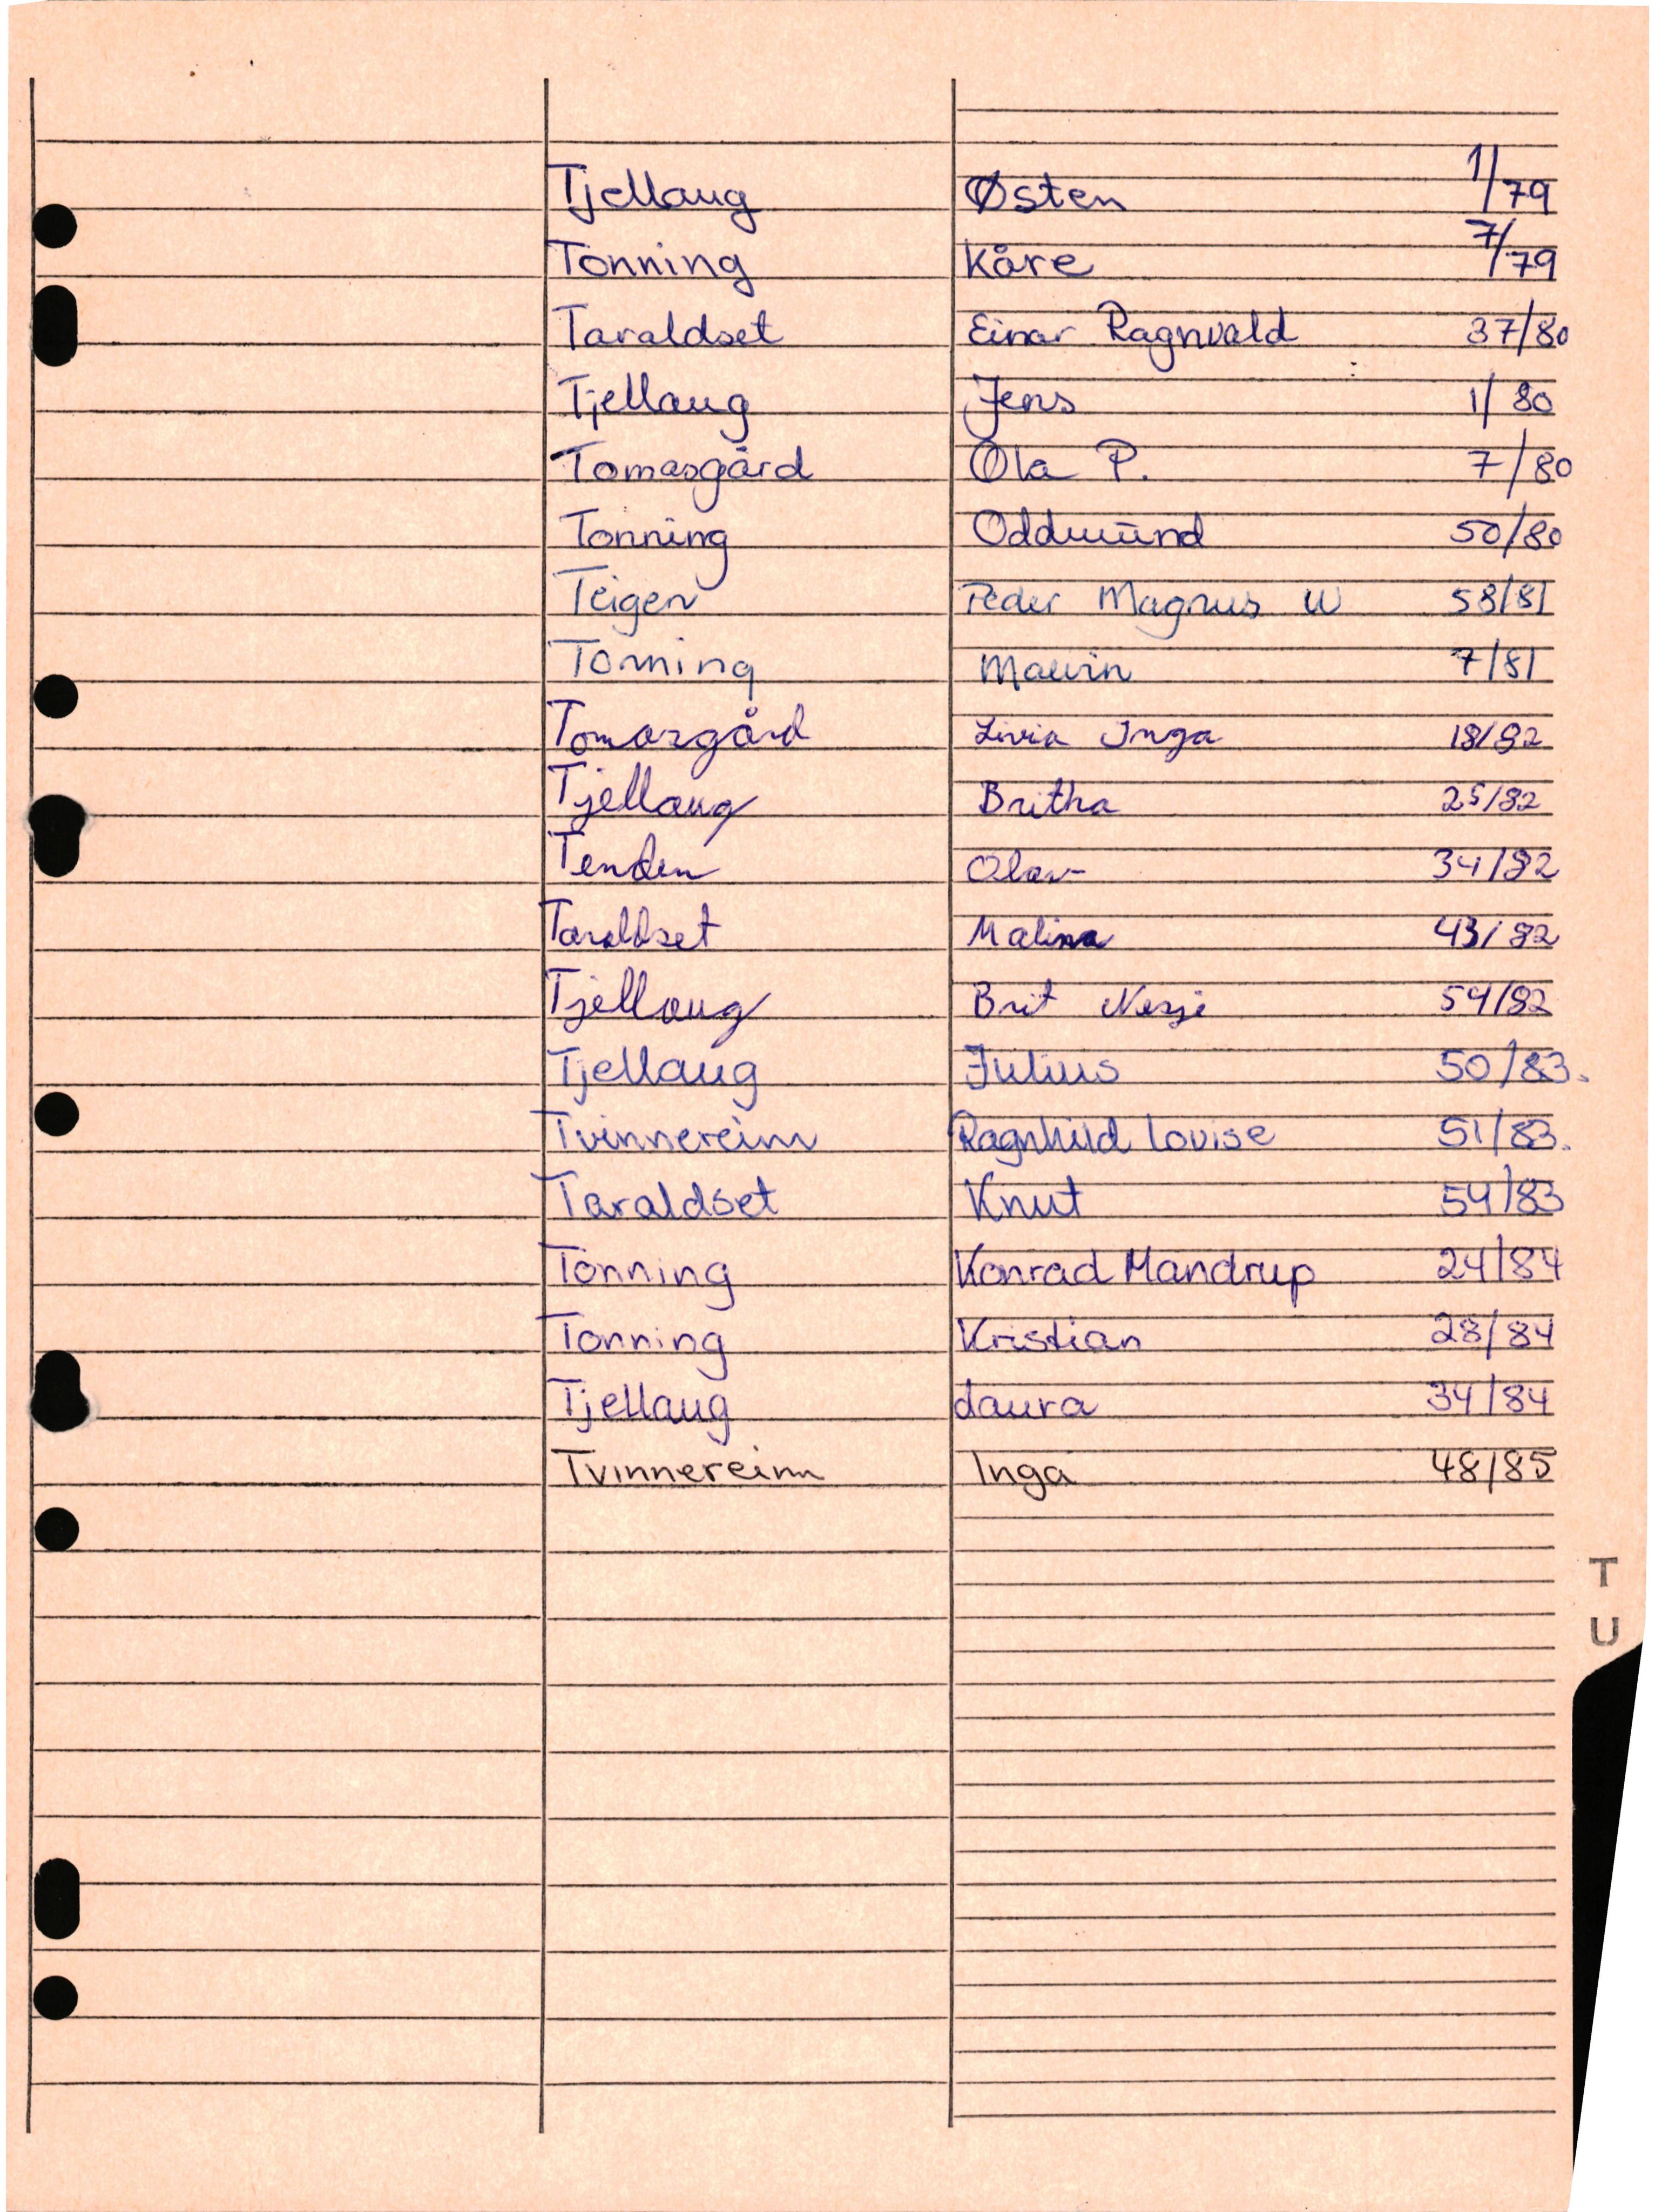 Tjellaug Østen 1/79
Tonning Kåre 7/79
Taraldset Einar Ragnvald 37/80
Tjellaug Jens 1/80
Tomasgård Ola P. 7/80
Tonning Oddmund 50/80
Teigen Peder Magnus W 58/81
Tonning Malvin 7/81
Tomasgård Livia Inga 18/82
Tjellaug Britha 25/82
Tenden Olav 34/82
Taraldset Malina 43/82
Tjellaug Brit Nesje 54/82
Tjellaug Julius 50/83.
Tvinnereim Ragnhild Lovise 51/83.
Taraldset Knut 54/83
Tonning Konrad Mandrup 24/84
Tonning Kristian 28/84
Tjellaug Laura 34/84
Tvinnereim Inga 48/85
T
U